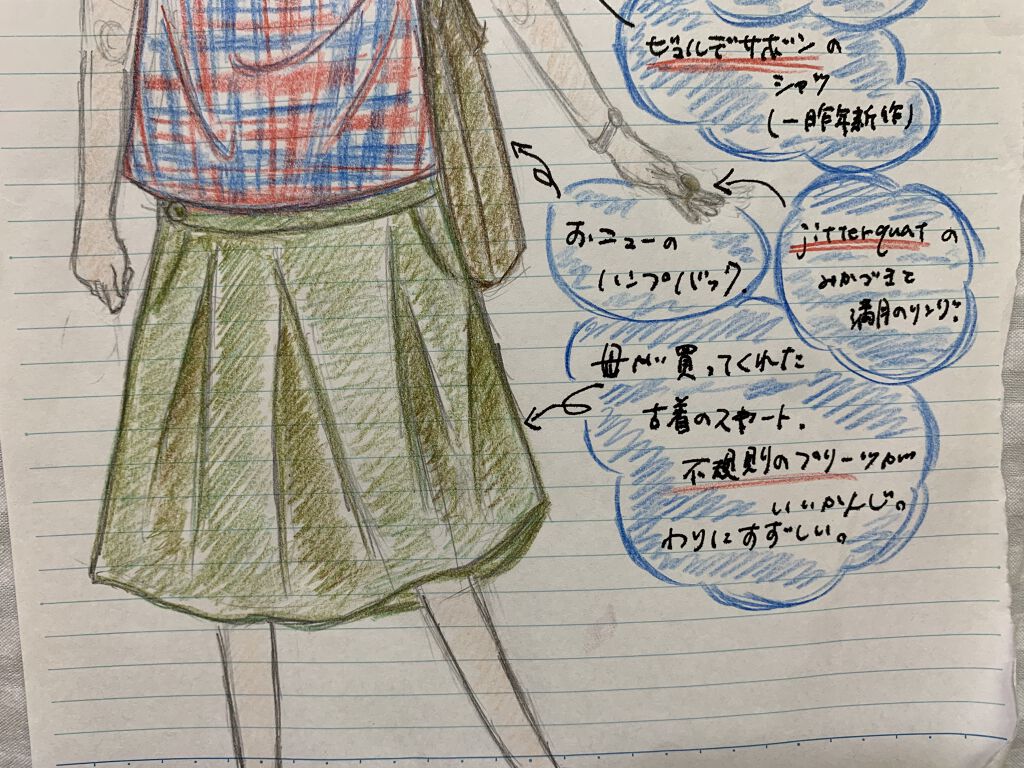 ビュルデサボンの
シャツ
(一昨年新作)
おニューの
ハンプバック.
jitterquatの
みかづきと
満月のリング.
母が買ってくれた
古着のスカート.
不規則のプリーツが
いいかんじ。
わりにすずしい。